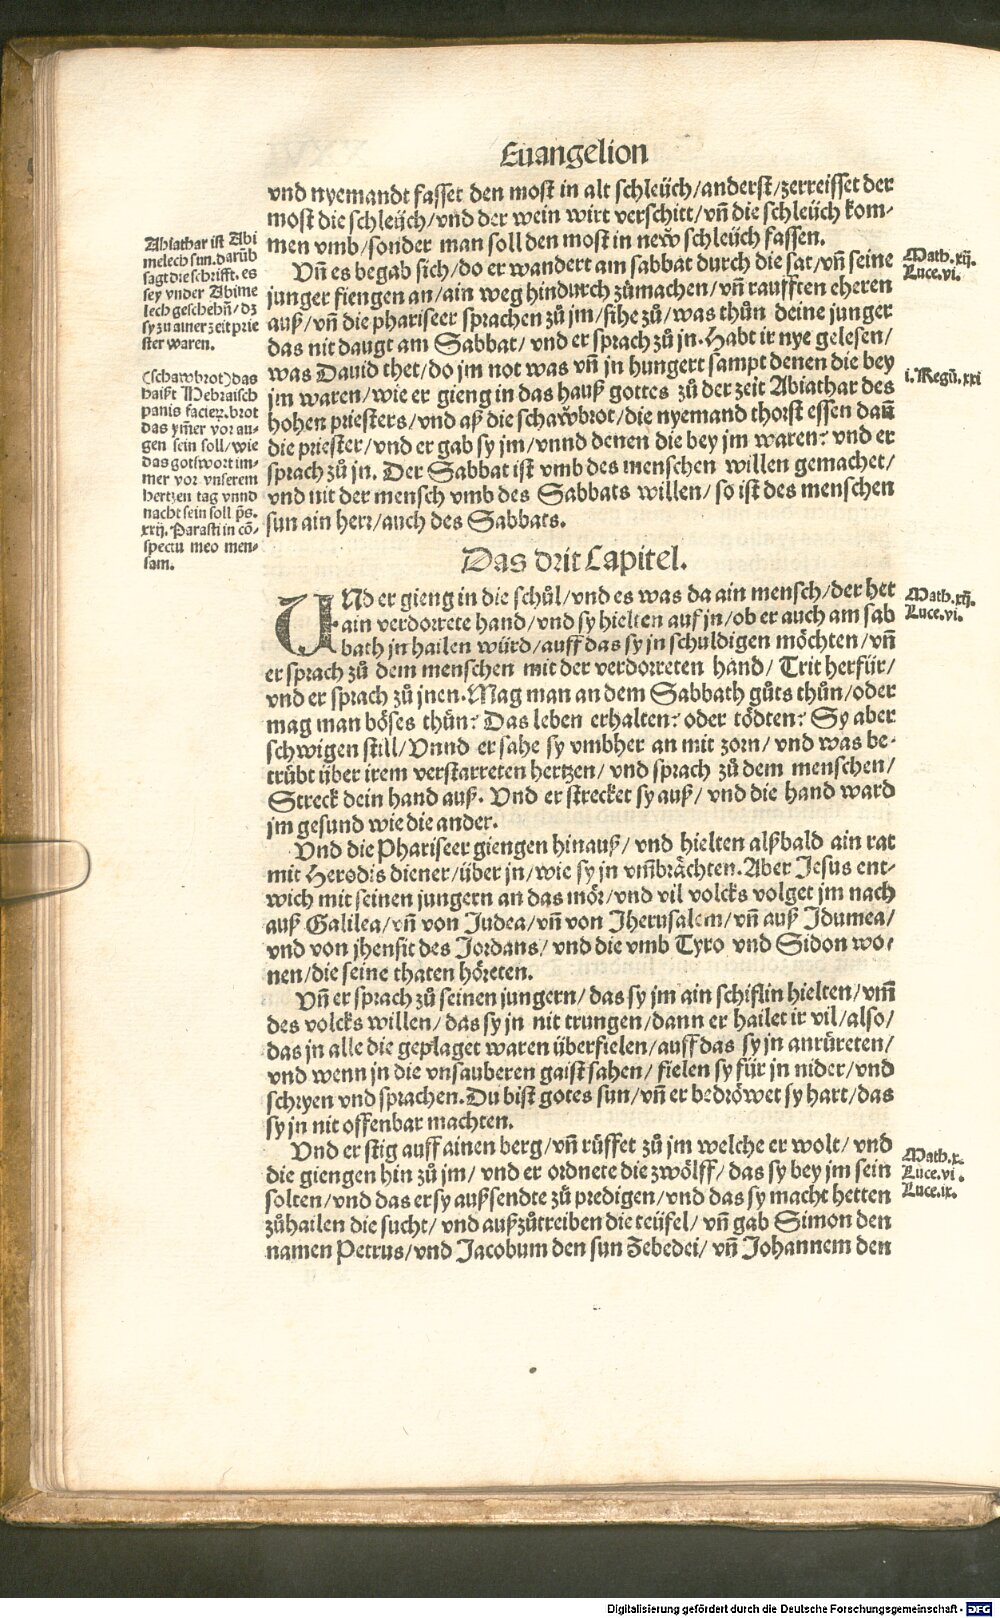 Euangelion
vnd nyemandt fasset den most in alt schleüch/anderst/zerreisset der
most die schleüch/vnd der wein wirt verschitt/vñ die schleüch kom-
men vmb/sonder man soll den most in new schleüch fassen.
Vñ es begab sich/do er wandert am sabbat durch die sat/vñ seine
junger fiengen an/ain weg hindurch zůmachen/vñ raufften eheren
auß/vñ die phariseer sprachen zů jm/sihe zů/was thůn deine junger
das nit daugt am Sabbat/ vnd er sprach zů jn. Habt ir nye gelesen/
was Dauid thet/do jm not was vñ in hungert sampt denen die bey
jm waren/wie er gieng in das hauß gottes zů der zeit Abiathar des
hohen priesters/vnd aß die schawbrot/die nyemand thorst essen dañ
die priester/vnd er gab sy jm/vnnd denen die bey jm waren: vnd er
sprach zů jn. Der Sabbat ist vmb des menschen willen gemachet/
vnd nit der mensch vmb des Sabbats willen/ so ist des menschen
sun ain herr/auch des Sabbats.
Abiathar ist Abi
melech sun. darũb
sagt die schrifft. es
sey vnder Abime
lech geschehñ/ dz
sy zu ainer zeit prie
ster waren.
(schawbrot) das
haißt Hebraisch
panis facierꝫ. brot
das ym̃er vor au-
gen sein soll/wie
das gotswort im-
mer vor vnserem
hertzen tag vnnd
nacht sein soll p̃s.
xxij. Parasti in cõ-
spectu meo men-
sam.
Math.xij.
Luce.vi.
i. Regũ.xxi
Das drit Capitel.
VNd er gieng in die schůl/vnd es was da ain mensch/der het
ain verdorrete hand/vnd sy hielten auf jn/ob er auch am sab
bath jn hailen würd/auff das sy jn schuldigen möchten/vñ
er sprach zů dem menschen mit der verdorreten hand/ Trit herfür/
vnd er sprach zů jnen. Mag man an dem Sabbath gůts thůn/oder
mag man böses thůn: Das leben erhalten: oder tödten: Sy aber
schwigen still/ Vnnd er sahe sy vmbher an mit zorn/ vnd was be-
trübt über irem verstarreten hertzen/ vnd sprach zů dem menschen/
Streck dein hand auß. Vnd er strecket sy auß/ vnd die hand ward
jm gesund wie die ander.
Vnd die Phariseer giengen hinauß/ vnd hielten alßbald ain rat
mit Herodis diener/über jn/wie sy jn vm̃brächten. Aber Jesus ent-
wich mit seinen jungern an das mör/vnd vil volcks volget jm nach
auß Galilea/vñ von Judea/vñ von Jherusalem/vñ auß Idumea/
vnd von jhensit des Jordans/ vnd die vmb Tyro vnd Sidon wo-
nen/die seine thaten höreten.
Vñ er sprach zů seinen jungern/ das sy jm ain schiflin hielten/vm̃
des volcks willen/ das sy jn nit trungen/dann er hailet ir vil/also/
das jn alle die geplaget waren überfielen/auff das sy jn anrüreten/
vnd wenn jn die vnsauberen gaist sahen/ fielen sy für jn nider/vnd
schryen vnd sprachen. Du bist gotes sun/vñ er bedröwet sy hart/das
sy jn nit offenbar machten.
Vnd er stig auff ainen berg/vñ rüffet zů jm welche er wolt/ vnd
die giengen hin zů jm/ vnd er ordnete die zwölff/ das sy bey jm sein
solten/vnd das er sy außsendte zů predigen/vnd das sy macht hetten
zůhailen die sucht/ vnd außzůtreiben die teüfel/ vñ gab Simon den
namen Petrus/vnd Jacobum den sun Zebedei/ vñ Johannem den
Math.xij.
Luce.vi.
Math.x.
Luce.vi.
Luce.ix.
Digitalisierung gefördert durch die Deutsche Forschungsgemeinschaft - DFG